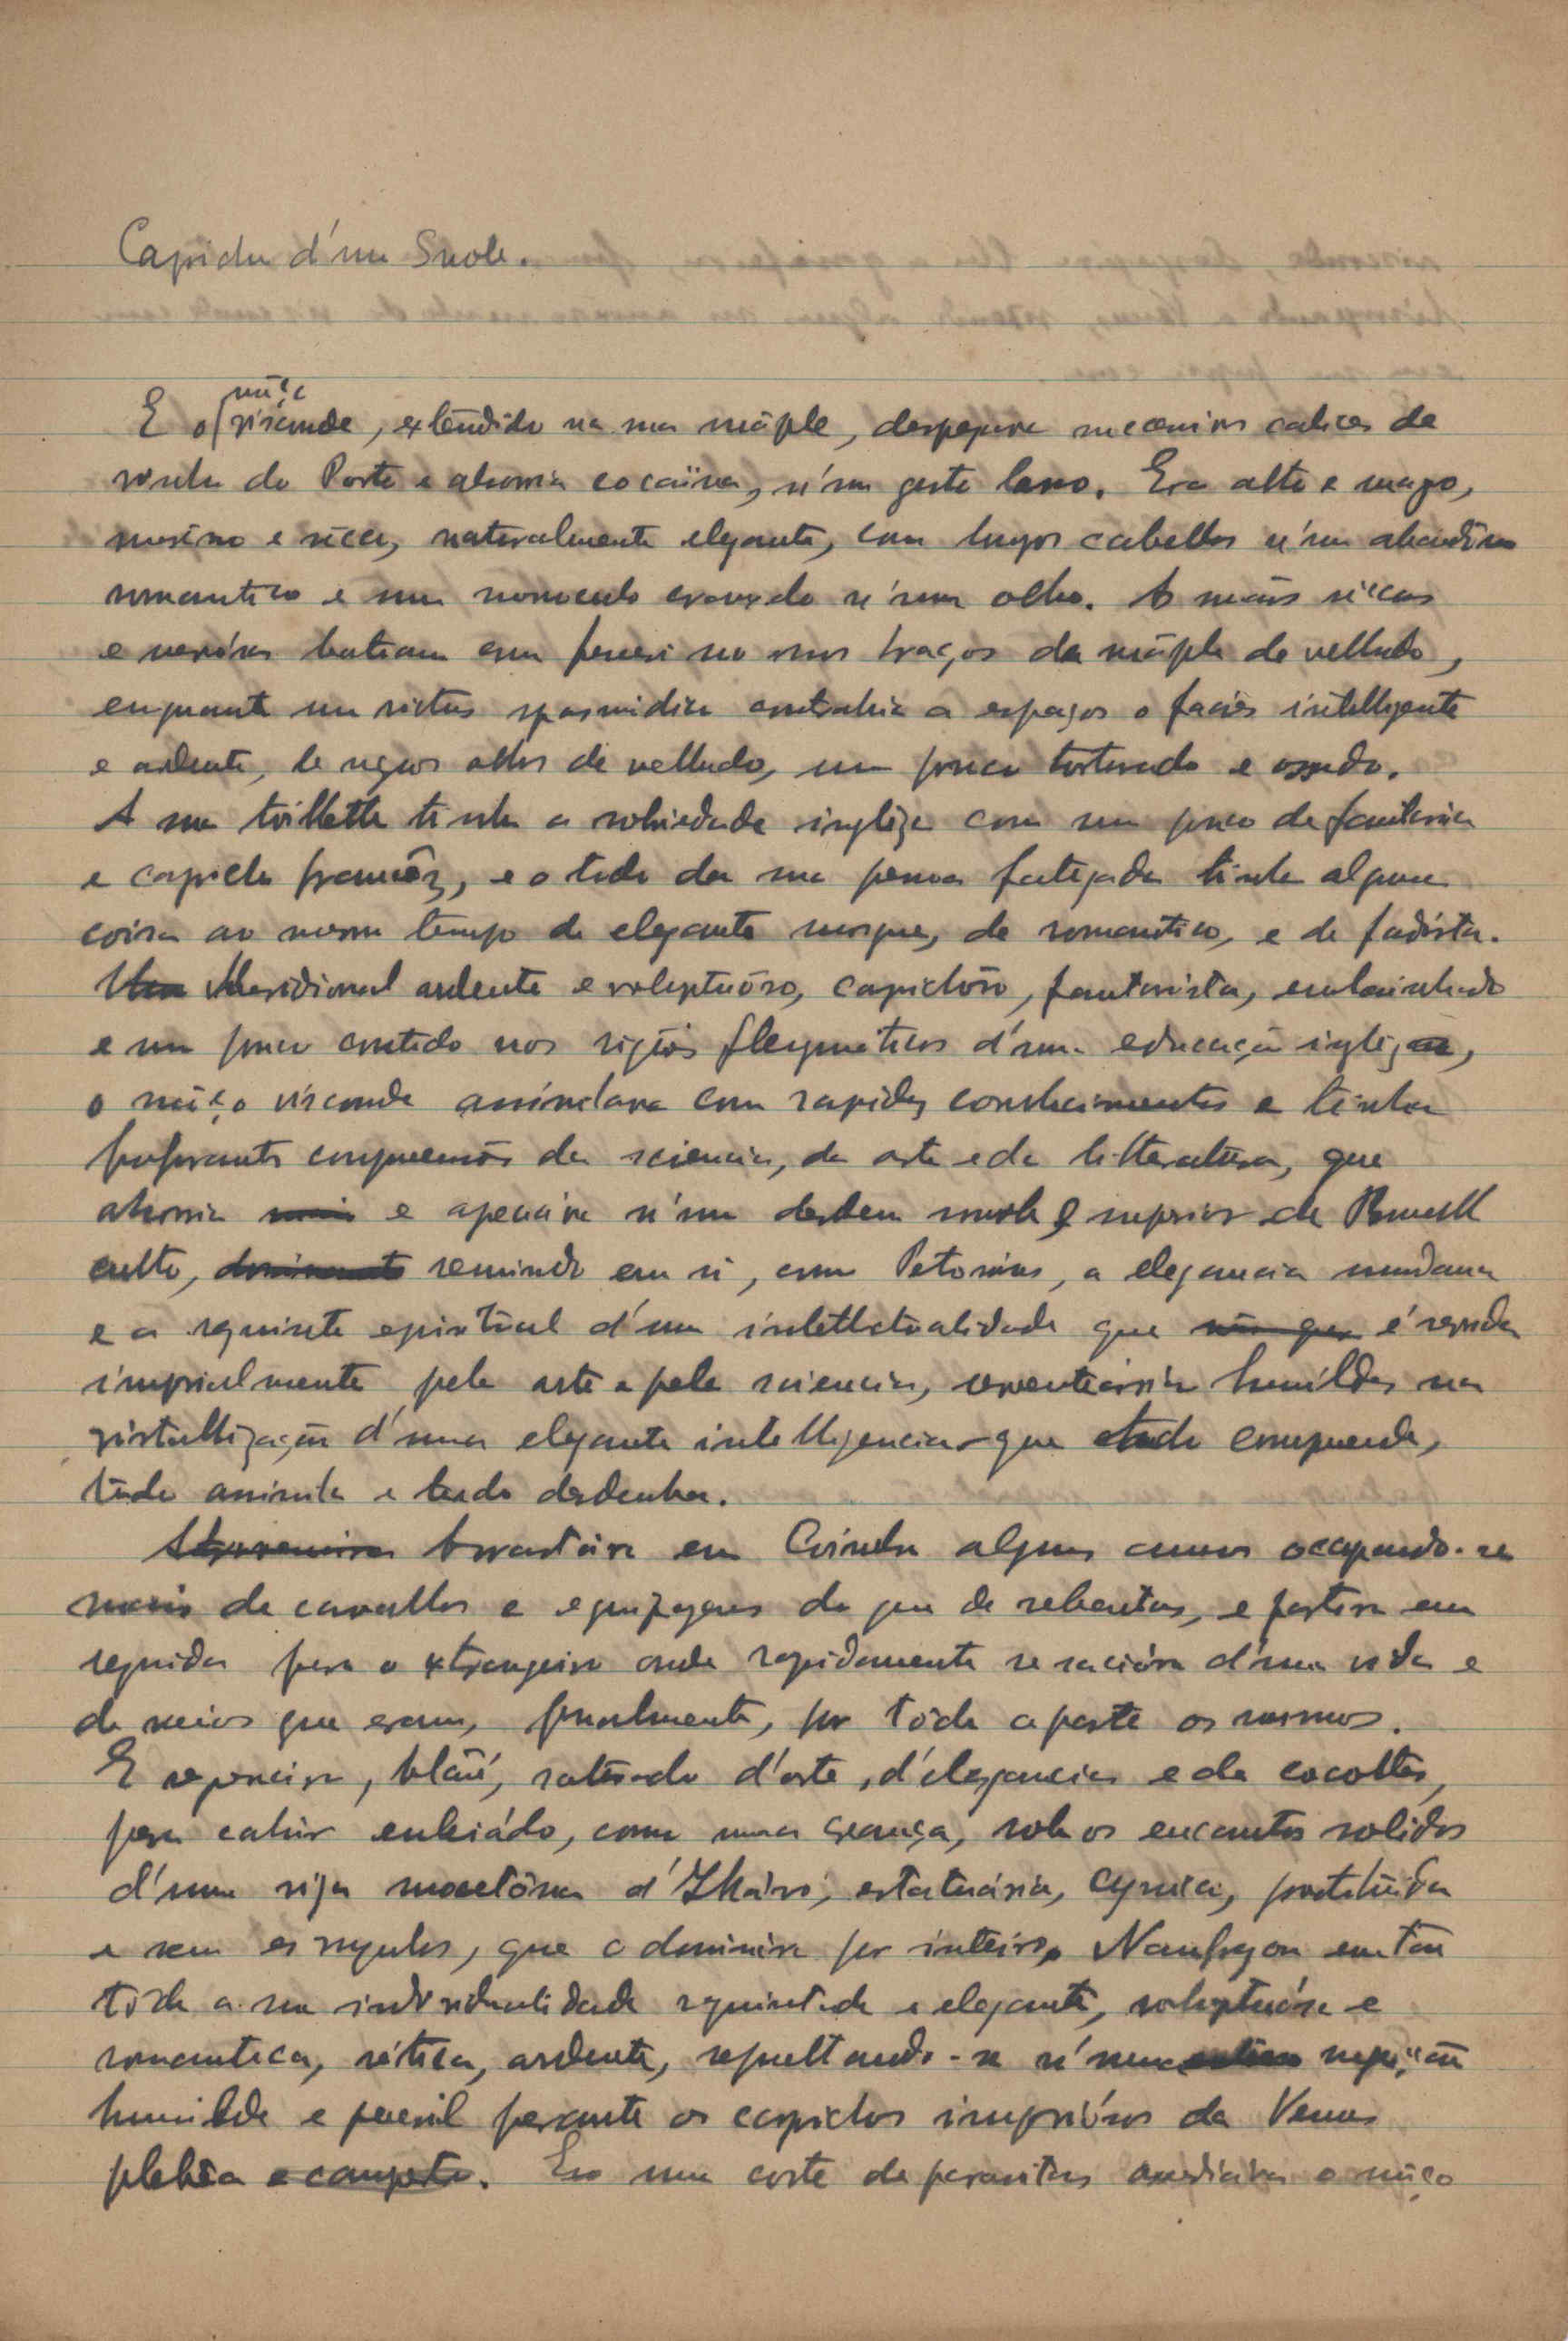 Capricho d'um Snob.
môço
E o visconde, extendido na sua máple, despejava successivos calices de
vinho do Porto e absorvia cocaïna, n'um gesto lasso. Era alto e magro,
moreno e sêcco, naturalmente elegante, com longos cabellos n'um abandôno
romantico e um monoculo cravado n'um olho. As mãos sêccas
e nervósas batiam com frenesi nos braços da máple de velludo,
emquanto um rictus spasmodico contrahia a espaços o faciès intelligente
e ardente, de negros olhos de velludo, um pouco torturado e ossudo.
A sua toillette tinha a sobriedade inglêza com um pouco de fantasia
e capricho francêz, e o todo da sua pessoa fatigada tinha alguma
coisa ao mesmo tempo de elegante snob, de romantico, e de fadista.
Meridional ardente e voluptuôso, caprichôso, fantasista, embainhado
e um pouco contido nos rigôres flegmáticos d'uma educação inglêza,
o môço visconde assimilava com rapidez conhecimentos e tinha
comprehensões da sciencia, da arte e da litteratura, que
absorvia e apreciava n'um desdem snob e superior de Brummell
culto, reunindo em si, como Petronius, a elegancia mundana
e o requinte espiritual d'uma intellectualidade que é servida
imperialmente pela arte e pela sciencia, humildes na
cristallização d'uma elegante intelligencia que tudo comprehende,
tudo assimila e tudo desdenha.
Arrastára em Coimbra alguns annos occupando-se
mais de cavallos e equipagens do que de sebentas, e partira em
seguida para o extrangeiro onde rapidamente se saciára d'uma vida e
de meios que eram, finalmente, por tôda a parte os mesmos.
E regressára, blasé, saturado d'arte, d'elegancias e de cocottes,
para cahir enleiádo, como uma creança, sob os encantos solidos
d'uma rija mocetôna d'Ilhávo, estatuária, cynica, prostituida
e sem escrupulos, que o dominava por inteiro. Naufragou então
tôda a sua individualidade requintada e elegante, voluptuósa e
romantica, ardente, sepultando-se n'uma sujeição
humilde e pueril perante os caprichos imperiósos da Venus
plebêa. E uma côrte de parasitas o môço